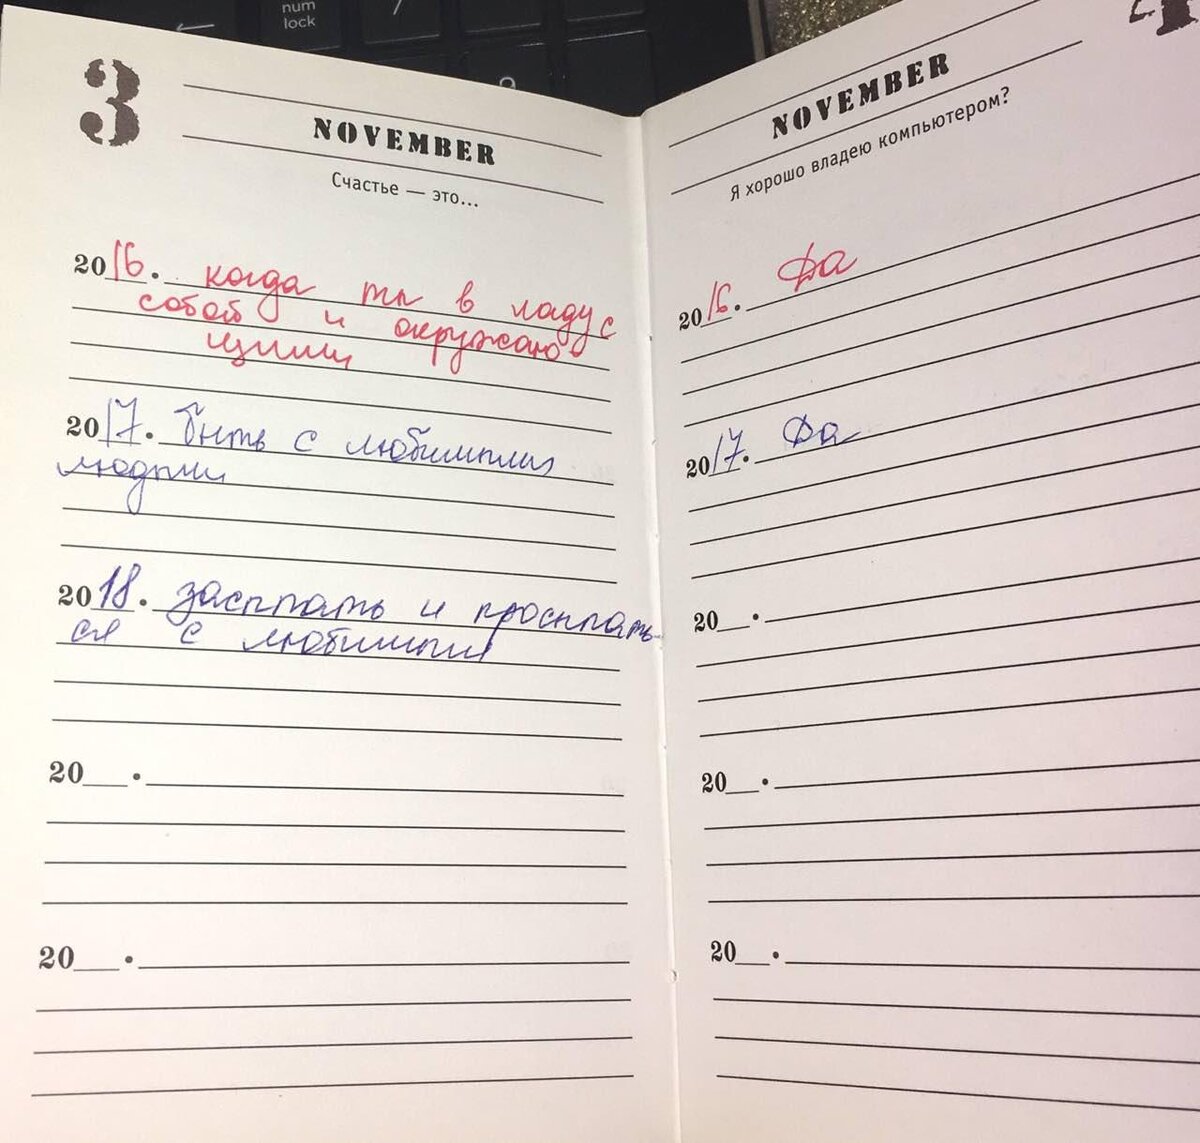 num
lock
7
3
NOVEMBER
Счастье — это...
2016. когда ты в ладу с
собой и окружаю-
щими
2017. быть с любимыми
людьми
2018. засыпать и просыпать-
ся с любимым
20__.
20__.
4
NOVEMBER
Я хорошо владею компьютером?
2016. Да
2017. Да
20__.
20__.
20__.